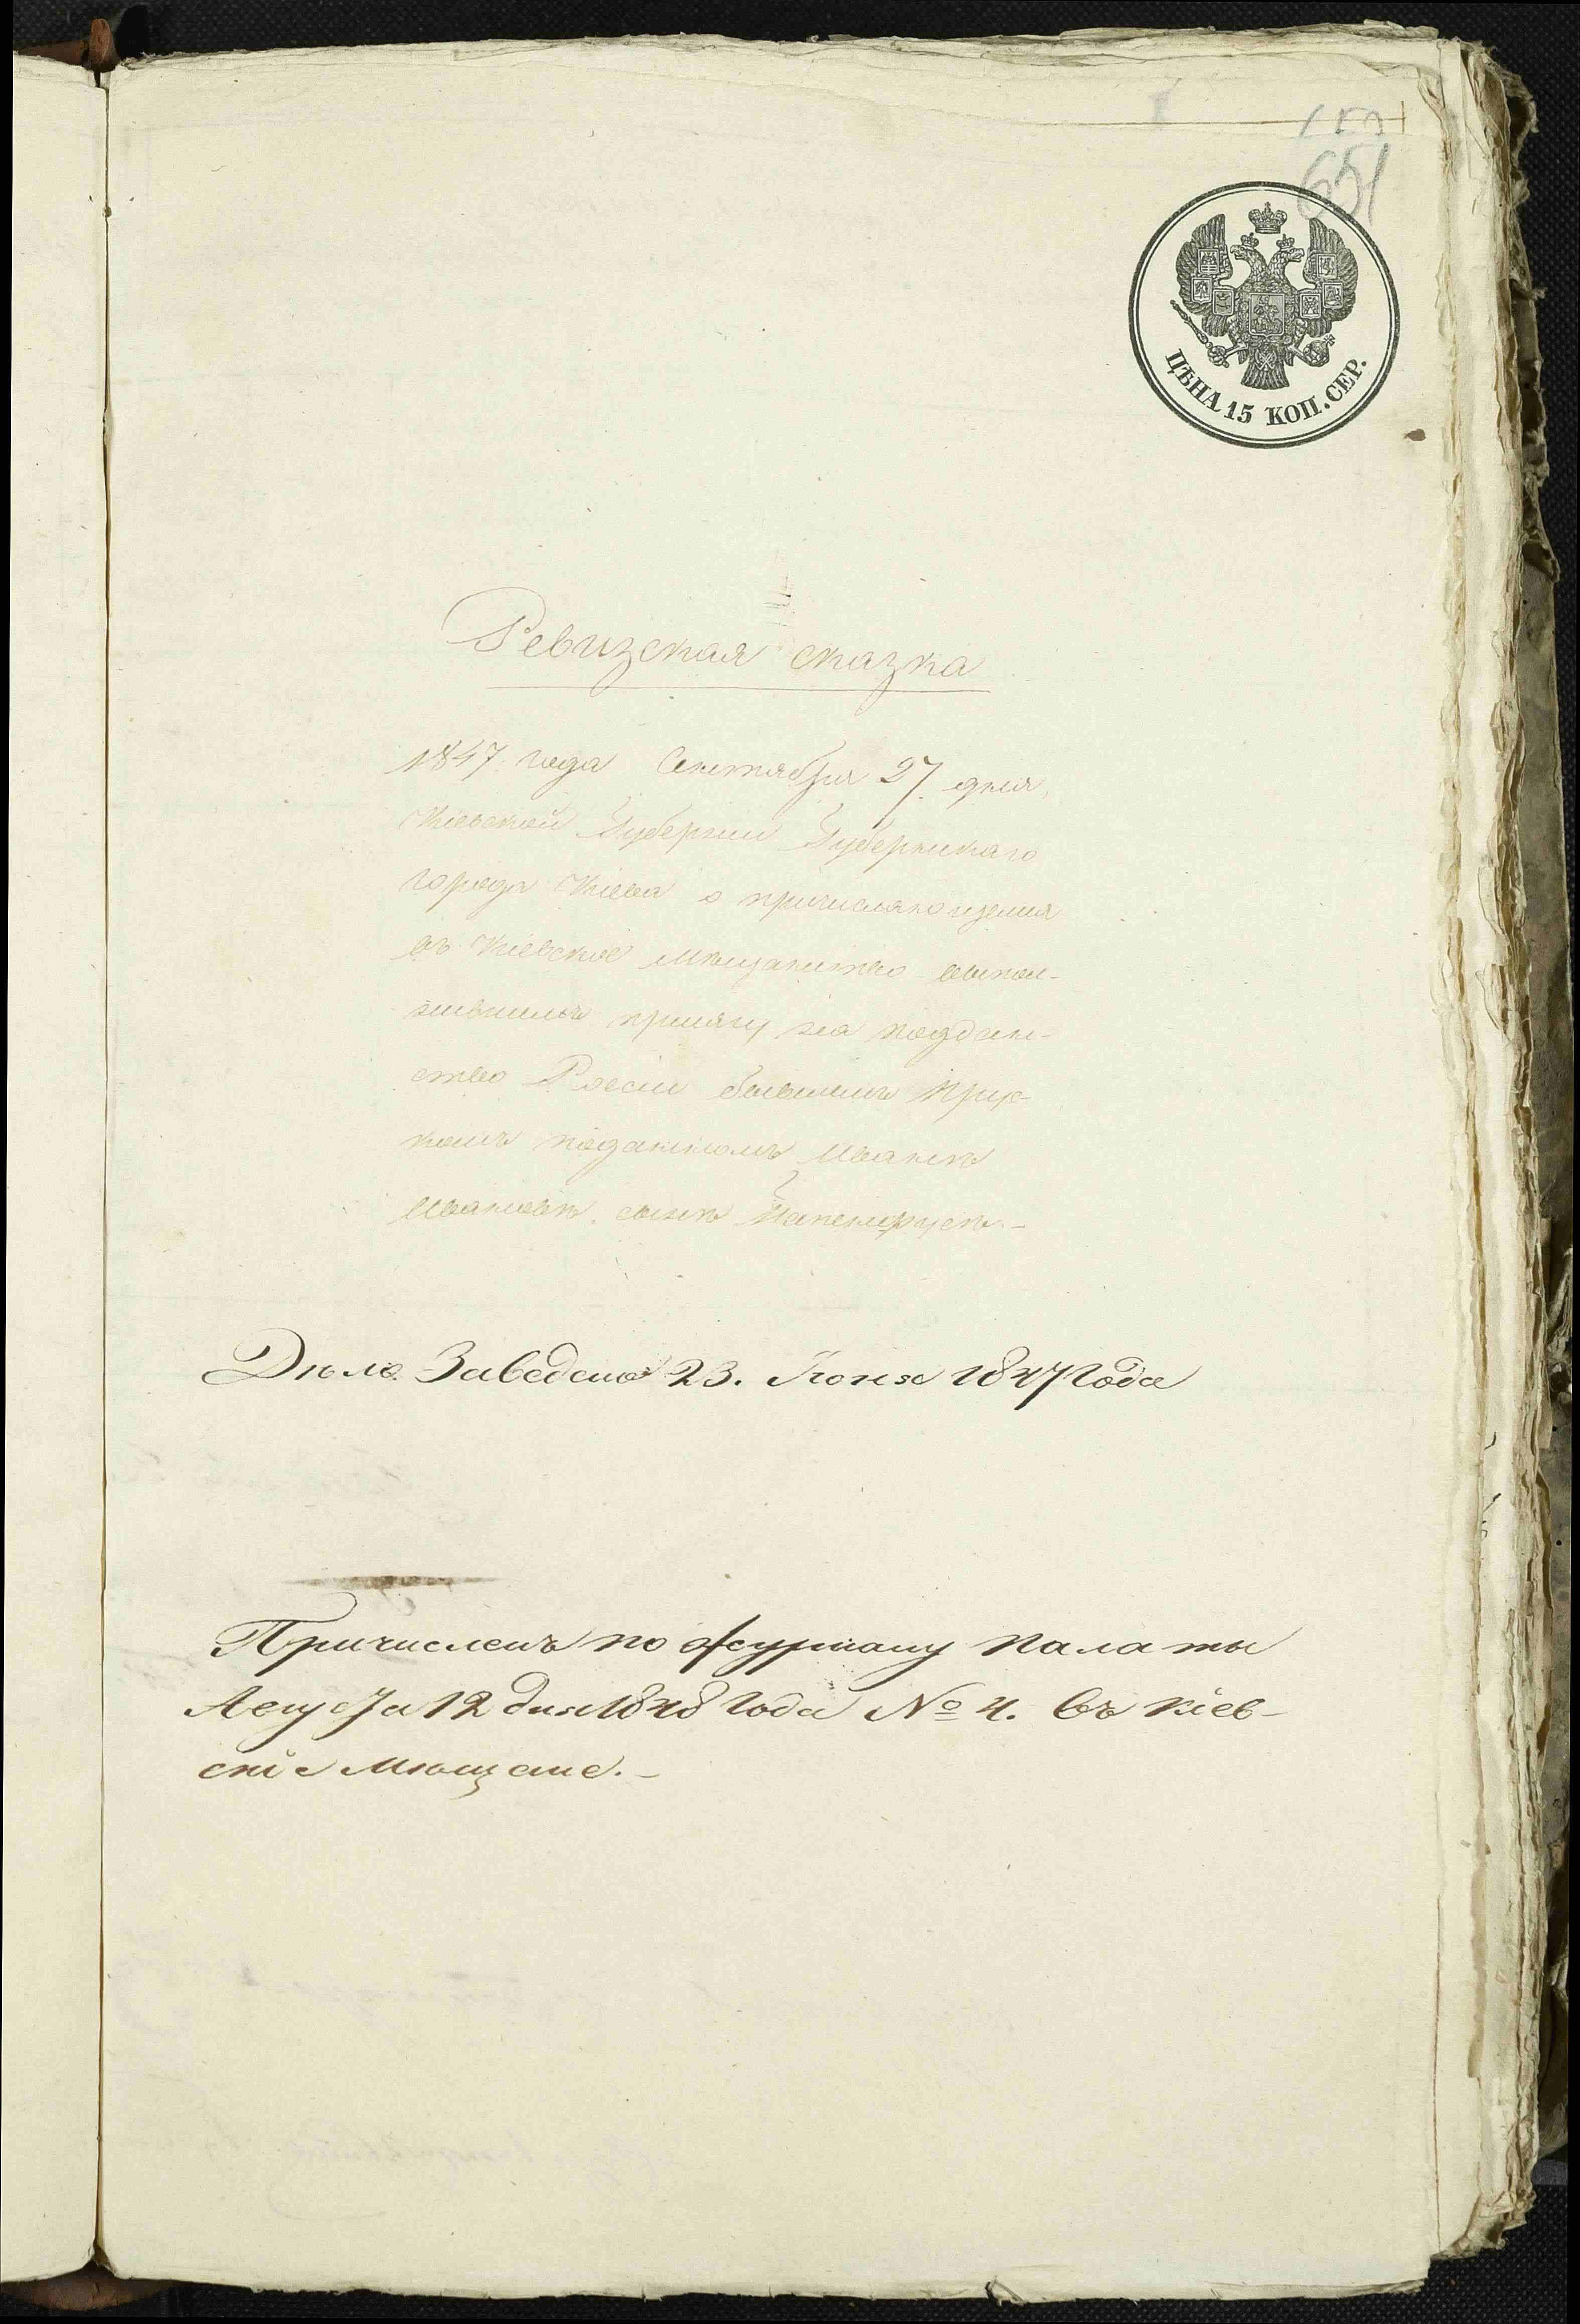 651
ЦѢНА 15 КОП. СЕР.
Ревизская сказка
1847 года Сентября 27 дня,
Кіевской Губерніи Губернскаго
города Кіева о причисляющемся
въ Кіевское мѣщанство выпол-
нившемъ присягу на поддан-
ство Россіи бывшимъ Прус-
комъ поданномъ Иванѣ
Ивановѣ сынѣ
Дѣло Заведено 23. Іюня 1847 Года
Причисленъ по журналу палаты
Августа 12 дня 1848 Года № 4. въ Кіев-
скіе Мѣщане.-